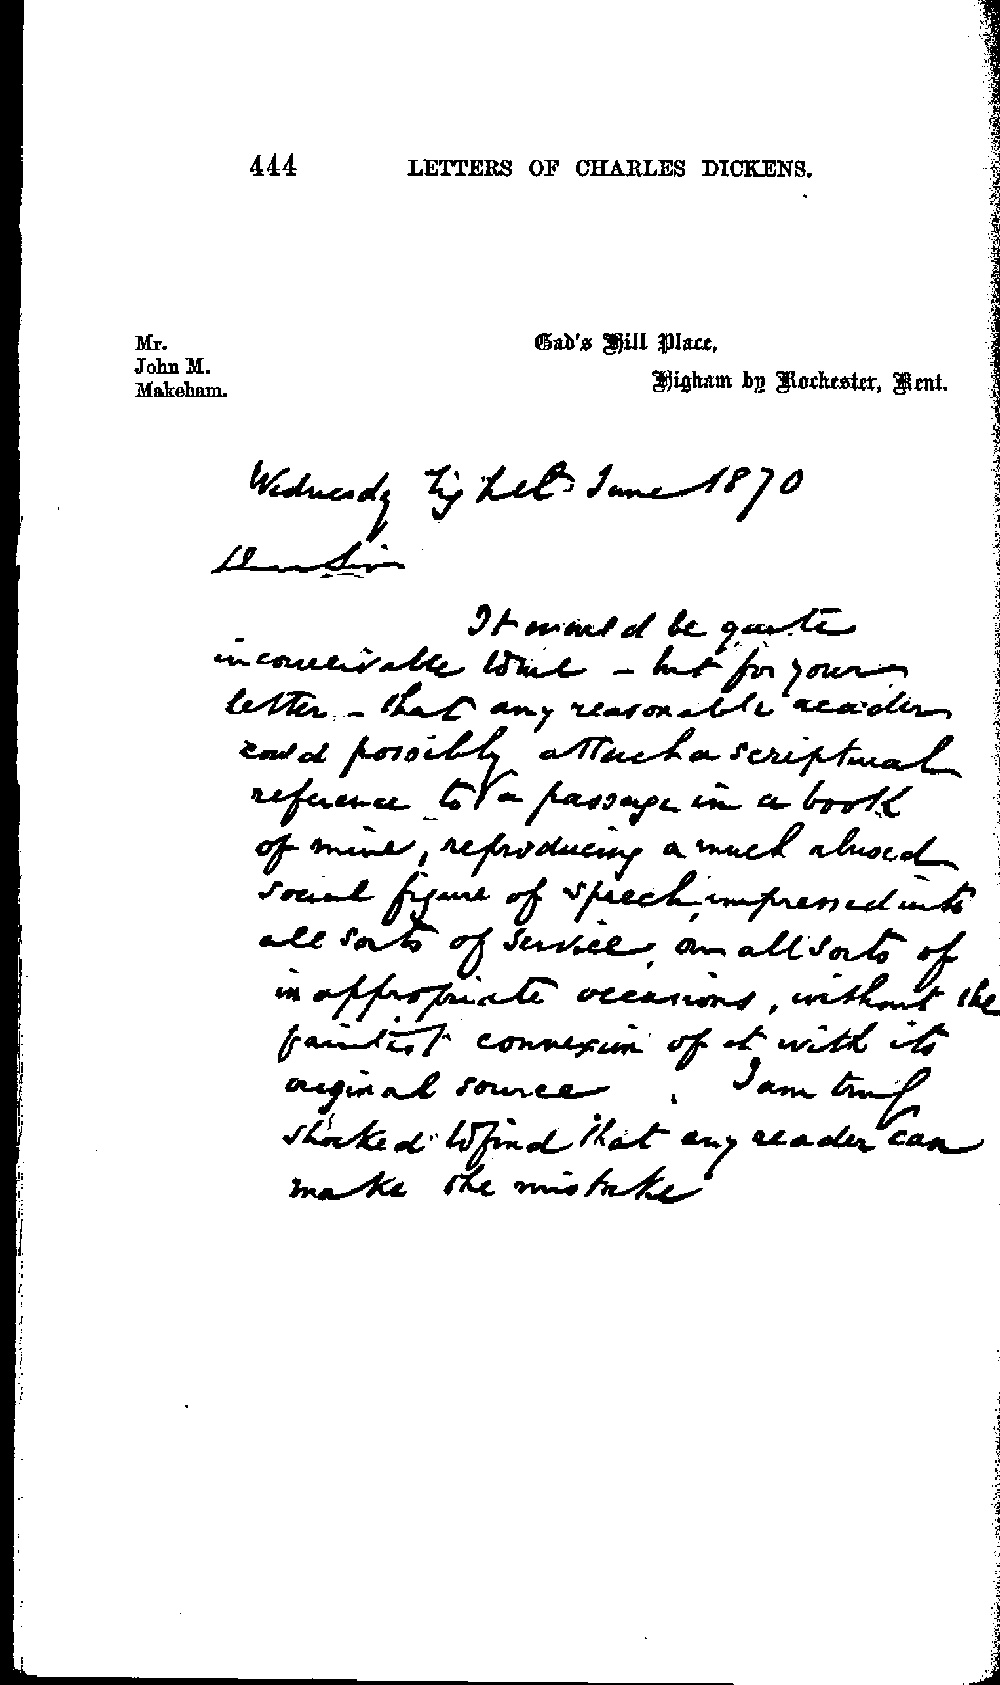 444 LETTERS OF CHARLES DICKENS.
Mr.
John M.
Makeham.
Gad's Hill Place,
Higham by Rochester, Kent.
Wednesday Eighth June 1870
Dear Sir
It would be quite
inconceivable to me – but for your
letter – that any reasonable reader
could possibly attach a scriptural
reference to a passage in a book
of mine, reproducing a much abused
social figure of speech, impressed into
all sorts of service, on all sorts of
inappropriate occasions, without the
faintest connexion of it with its
original source. I am truly
shocked to find that any reader can
make the mistake